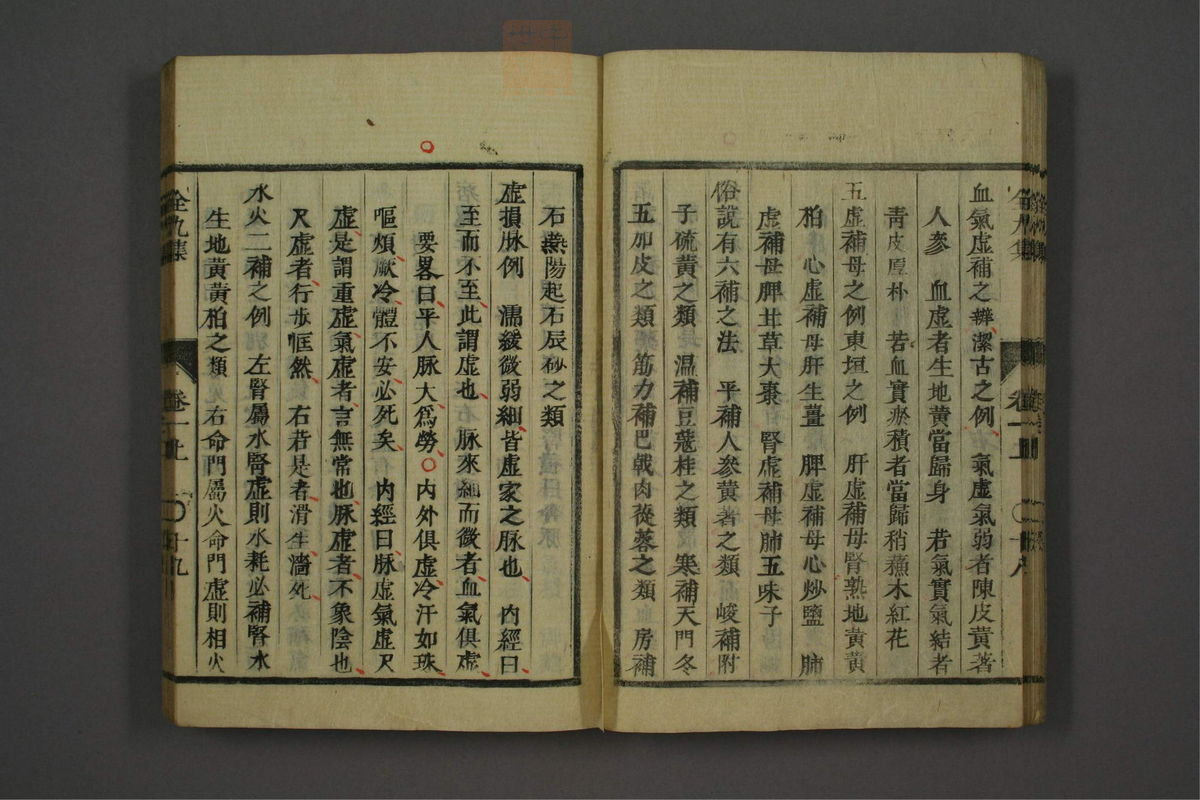 血氣虛補之辨潔古之例氣虛氣弱者陳皮黃蓍
人參 血虛者生地黃當歸身 若氣實氣結者
青皮厚朴 若血實瘀積者當歸稍蘓木紅花
五虛補母之例東垣之例 肝虛補母腎熟地黃黃
栢 心虛補母肝生薑 脾虛補母心炒鹽 肺
虛補母脾甘草大棗 腎虛補母肺五味子
俗説有六補之法 平補人參黃蓍之類 峻補附
子硫黃之類 温補豆蔻桂之類 寒補天門冬
五加皮之類 筋力補巴戟肉蓯蓉之類 房補
全九集 卷一上 十八
石燕陽起石辰砂之類
虛損脉例 濡緩微弱細皆虛家之脉也 内經曰
至而不至此謂虛也 脉來細而微者血氣俱虛
要畧曰平人脉大爲勞○内外俱虛冷汗如珠
嘔煩厥冷體不安必死矣 内經曰脉虛氣虛尺
虛是謂重虛氣虛者言無常也脉虛者不象陰也
尺虛者行步恇然 右若是者滑生濇死
水火二補之例 左腎屬水腎虛則水耗必補腎水
生地黃黃栢之類 右命門屬火命門虛則相火
全九集 卷一上 十九